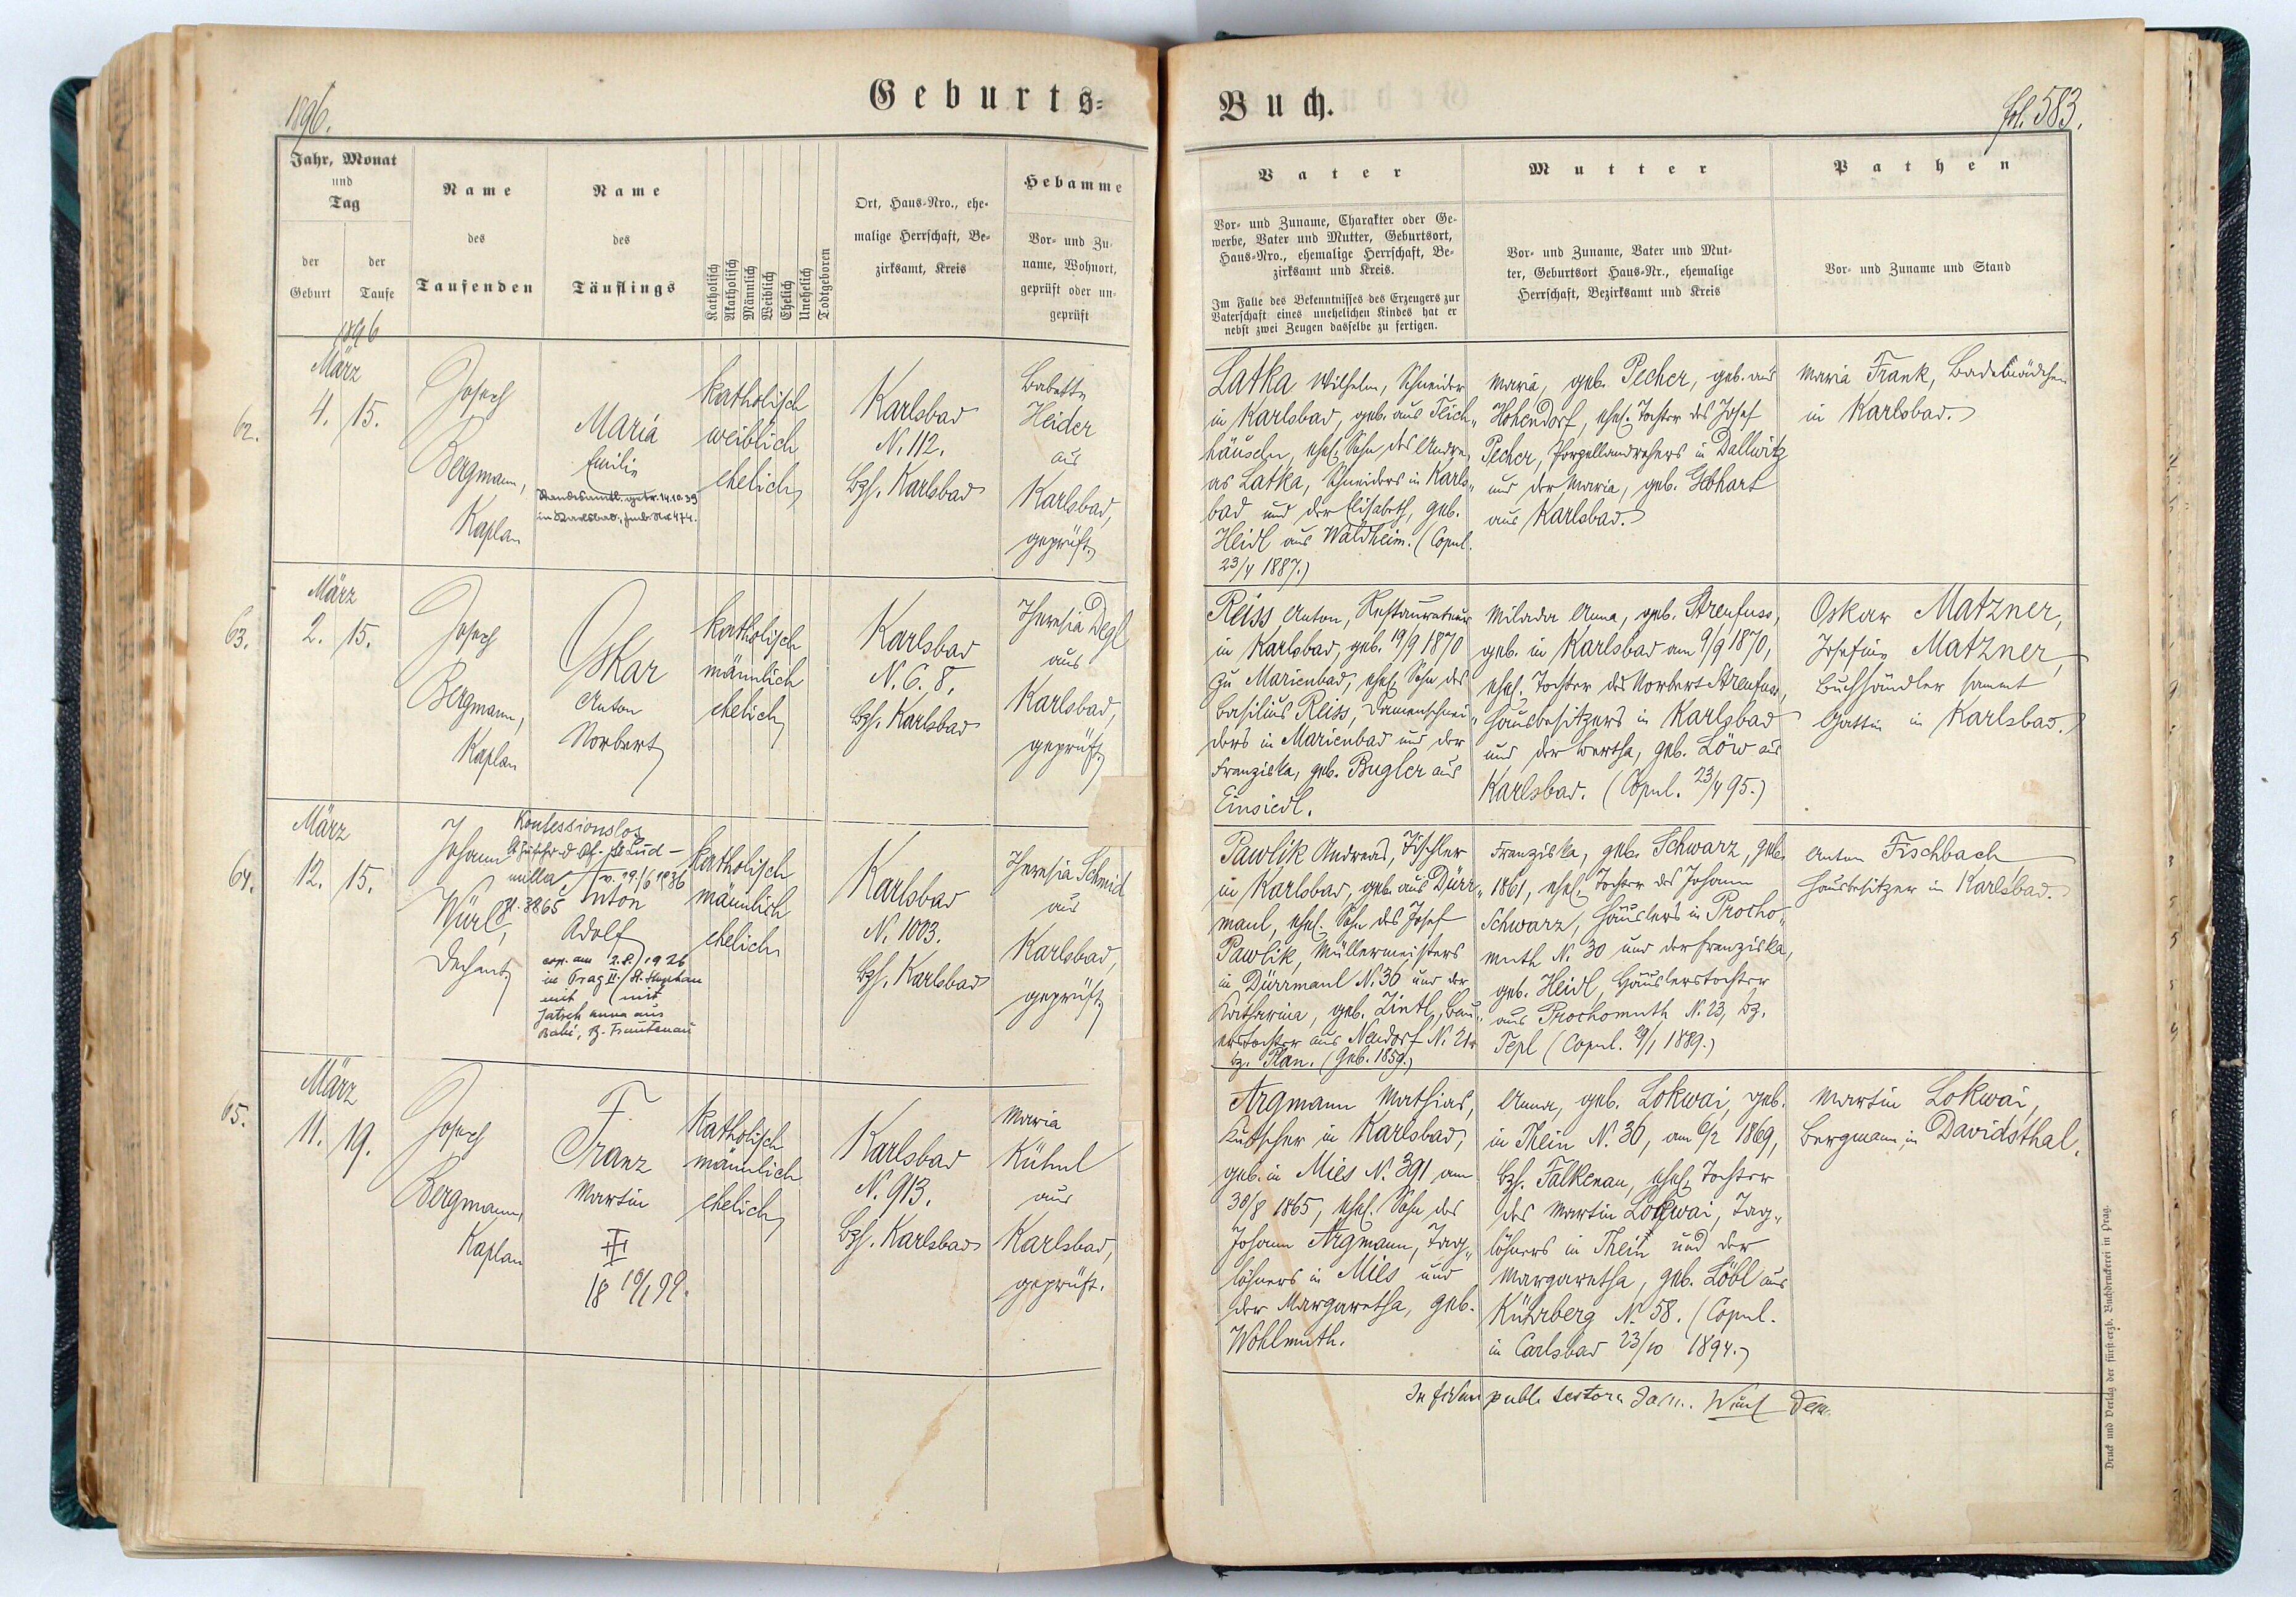 1896.
Geburts=
Buch.
fol. 583.
Jahr, Monat
und
Tag
der
Geburt
der
Taufe
Name
des
Taufenden
Name
des
Täuflings
Katholisch
Akatholisch
Männlich
Weiblich
Ehelich
Unehelich
Todtgeboren
Ort, Haus-Nro., ehe-
malige Herrschaft, Be-
zirksamt, Kreis
Hebamme
Vor- und Zu-
name, Wohnort,
geprüft oder un-
geprüft
Vater
Vor- und Zuname, Charakter oder Ge-
werbe, Vater und Mutter, Geburtsort,
Haus-Nro., ehemalige Herrschaft, Be-
zirksamt und Kreis.
Im Falle des Bekenntnisses des Erzeugers zur
Vaterschaft eines unehelichen Kindes hat er
nebst zwei Zeugen dasselbe zu fertigen.
Mutter
Vor- und Zuname, Vater und Mut-
ter, Geburtsort Haus-Nr., ehemalige
Herrschaft, Bezirksamt und Kreis
Pathen
Vor- und Zuname und Stand
1896
62.
März
4. 15.
Josef
Bergmann,
Kaplan
Maria
Emilie
Standesamtl. getr. 14.10.39
in Karlsbad, Nr 474.
katholisch
weiblich
ehelich
Karlsbad
N. 112.
Bzh. Karlsbad
Babette
Heider
aus
Karlsbad,
geprüft.
Latka Wilhelm, Schneider
in Karlsbad, geb. aus Teich-
häuseln, ehel. Sohn des Andre-
as Latka, Schneiders in Karls-
bad und der Elisabeth, geb.
Heidl aus Waldheim. (Copul.
23/4 1887.)
Maria, geb. Pecher, geb. aus
Hohendorf, ehel. Tochter des Josef
Pecher, Porzellandrehers in Dallwitz
und der Maria, geb. Gebhart
aus Karlsbad.
Maria Frank, Bademädchen
in Karlsbad.
63.
März
2. 15.
Josef
Bergmann,
Kaplan
Oskar
Anton
Norbert
katholisch
männlich
ehelich
Karlsbad
N. C. 8.
Bzh. Karlsbad
Theresia Degl
aus
Karlsbad,
geprüft.
Reiss Anton, Restaurateur
in Karlsbad, geb. 19/9 1870
zu Marienbad, ehel. Sohn des
Basilius Reiss, Damenschnei-
ders in Marienbad und der
Franziska, geb. Bugler aus
Einsiedl.
Milada Anna, geb. Strenfuss,
geb. in Karlsbad am 9/9 1870,
ehel. Tochter des Norbert Strenfuss,
Hausbesitzers in Karlsbad
und der Bertha, geb. Löw aus
Karlsbad. (Copul. 23/4 95.)
Oskar Matzner,
Josefine Matzner,
Buchhändler sammt
Gattin in Karlsbad.
64.
März
12. 15.
Johann
Würl,
Dechant
Konfessionslos
St. Lud-
milla v. 19/6 1936
Z. 3865
Anton
Adolf
cop. am 2.8. 1926
in Prag II. / St. Stephan
mit
Jatsch Anna aus
B. Trautenau
katholisch
männlich
ehelich
Karlsbad
N. 1003.
Bzh. Karlsbad
Theresia Schmid
aus
Karlsbad,
geprüft.
Pawlik Andreas, Tischler
in Karlsbad, geb. aus Dürr-
maul, ehel. Sohn des Josef
Pawlik, Müllermeisters
in Dürrmaul N. 36 und der
Katharina, geb. Zintl, Bau-
erstochter aus Neudorf N. 21
bz. Plan. (Geb. 1859.)
Franziska, geb. Schwarz, geb.
1861, ehel. Tochter des Johann
Schwarz, Häuslers in Procho-
muth N. 30 und der Franziska,
geb. Heidl, Häuslerstochter
aus Prochomuth N. 23, bz.
Tepl (Copul. 29/1 1889.)
Anton Fischbach,
Hausbesitzer in Karlsbad.
65.
März
11. 19.
Josef
Bergmann,
Kaplan
F.
Franz
Martin
III
18 10/1 99.
katholisch
männlich
ehelich
Karlsbad
N. 913.
Bzh. Karlsbad
Maria
Kühnl
aus
Karlsbad,
geprüft.
Argmann Mathias,
Kutscher in Karlsbad,
geb. in Mies N. 391 am
30/8 1865, ehel. Sohn des
Johann Argmann, Tag-
löhners in Mies und
der Margaretha, geb.
Wohlmuth.
Anna, geb. Lokwai, geb.
in Thein N. 30, am 6/2 1869,
Bzh. Falkenau, ehel. Tochter
des Martin Lokwai, Tag-
löhners in Thein und der
Margaretha, geb. Löbl aus
Kührberg N. 58. (Copul.
in Carlsbad 23/10 1894.)
Martin Lokwai,
Bergmann in Davidsthal.
Würl Dech.
Druck und Verlag der fürst-erzb. Buchdruckerei in Prag.